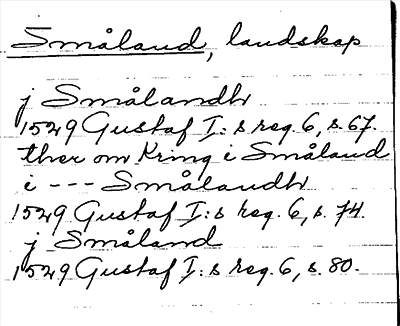 Småland, landskap
j Smålandh
1529 Gustaf I:s reg. 6, s. 67.
ther om kring i Småland
i --- Smålandh
1529 Gustaf I:s reg. 6, s. 74.
j Småland
1529 Gustaf I:s reg. 6, s. 80.